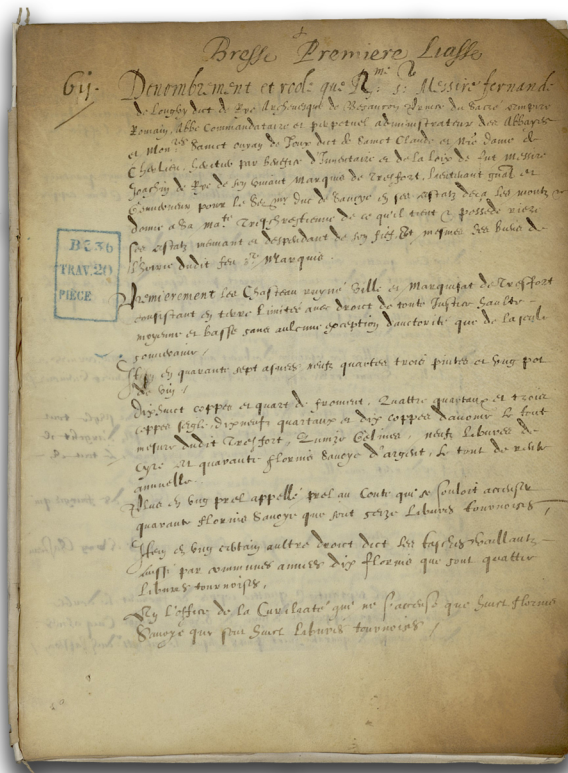 Bresse Premiere Liasse
611.
Denombrement et role que Rme Sr Messire fernande
de Longvy dict de Rye Archevesque de Besançon Prince du Sacre empire
Romain, Abbe Commandataire et perpetuel administrateur des Abbayes
et Mon de Sanct ouyay de Joux dict de Sanct Claude et Nre dame de
Cherlieu, heritier par benefice d'Inventaire et de la loix de feu Messire
Joachin de Rye de son vivant Marquis de Treffort, Lieutenant gnal et
Gouverneur pour le duc de Savoye en ses estatz deça les montz
donne a Sa Maté Treschrestienne de ce qu'il tient et possede riere
ses estatz mouvant et despendant de son fief et mesmes des biens de
l'hoyrie dudit feu sr Marquis.
B 736
TRAV. 20
PIÈCE
Premierement Les Chasteau ruyné Ville et Marquisat de Treffort
consistant en terre Limitee avec droict de toute Justice haulte
moyenne et basse sans aulcune exception d'auctorité que de la seule
souveraine /
It en quarante sept asnees neufz quartes trois pintes et ung pot
de vin /
Dixhuict coppes et quart de froment, Quattre quartaux et trois
coppes seigle, dixneuf quartaux et dix coppes d'avoine Le tout
mesure dudit Treffort, Unze Gelines, neufz Libures de
Cyre et quarante florins Savoye d'argent, Le tout de rente
annuelle.
Plus en ung prel appellé prel au Conte qui se souloit accenser
quarante florins Savoye que sont seize Libures tournoises /
Item en ung certain aultre droict dict Les
Laissé par communes annees dix florins que sont quattre
Libures tournoises.
En l'office de la Curialité que ne s'accense que huict florins
Savoye que sont Libures tournoises /